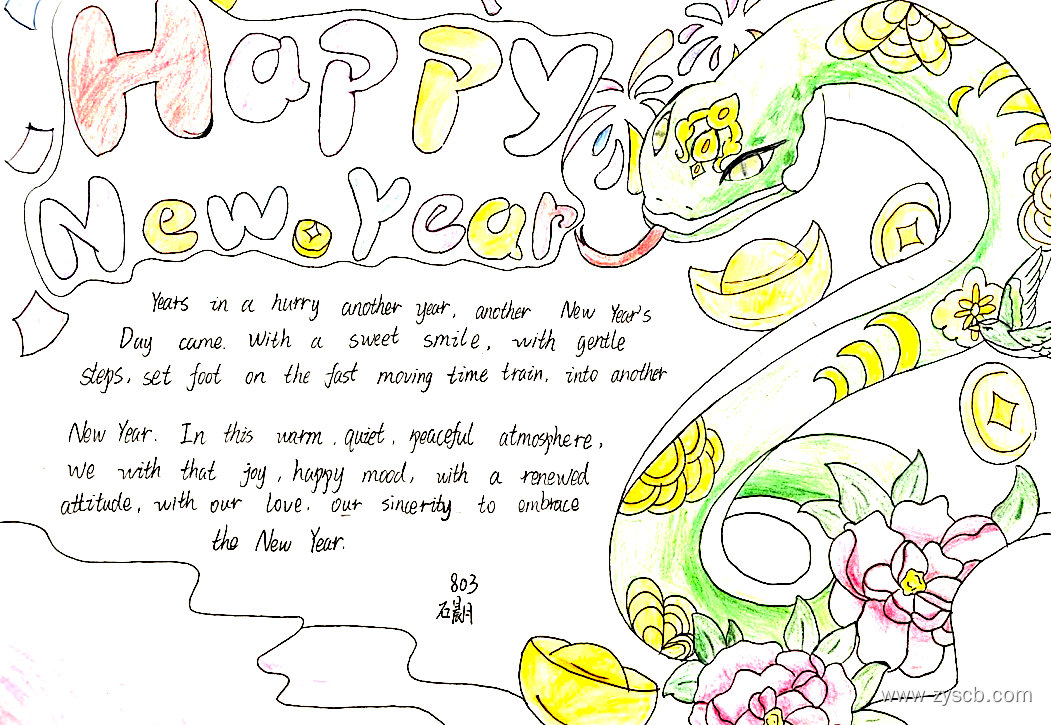 Happy
New Year
Years in a hurry another year, another New Year's
Day came. With a sweet smile, with gentle
steps, set foot on the fast moving time train, into another
New Year. In this warm, quiet, peaceful atmosphere,
we with that joy, happy mood, with a renewed
attitude, with our love, our sincerity to embrace
the New Year.
803
www.zyscb.com